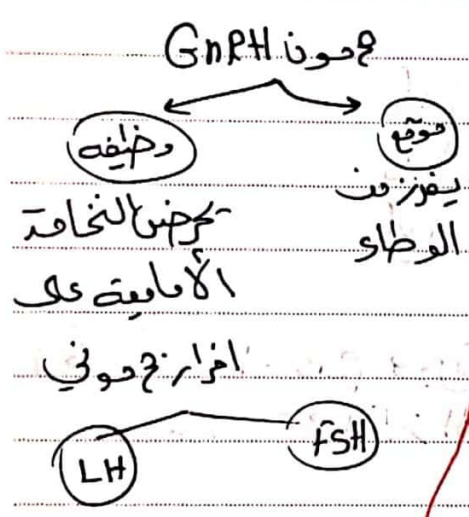 هرمون GnRH
موقع
يفرز من
الوطاء
وظيفه
تحرض النخامة
الأمامية على
افراز هرموني
FSH
LH